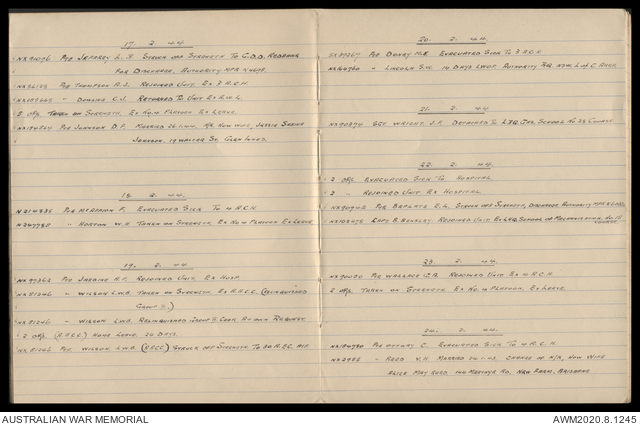 17. 2. 44
NX91096 Pte Jeffrey L.G Struck off Strength To G.D.D. Redbank
For Discharge, Authority
Pte Thompson R.J. Rejoined Unit Ex 2 A.C.H.
C.J. Returned To Unit Ex A.W.L.
2 O/R Taken on Strength Ex No. 4 Platoon Ex Leave
Pte Johnson D.F. Married 26.1.44. N/K Now Wife, Jessie
Johnson. 19 Walter St. Glen Innes.
18. 2. 44
NX214835 Pte F. Evacuated Sick To 4 A.C.H
NX247780 - Horton W.H Taken on Strength Ex No 4 Platoon Ex Leave
19. 2. 44
NX97362 Pte Jardine A.F. Rejoined Unit Ex Hosp.
NX81246 - Wilson L.W.A. Taken on Strength Ex A.A.C.C. (Relinquished
Group 2.)
NX81246 - Wilson L.W.A. Relinquished Group 2 Cook At own Request.
2 O/R (A.A.C.C.) Home Leave 20 Days.
NX81246 Pte. Wilson L.W.A. (A.A.C.C.) Struck off Strength To
20. 2. 44.
Pte M.R. Evacuated Sick To 2 A.C.H
- Lincoln S.W. 14 Days LWOP. Authority HQ. NSW L of C Area
21. 2. 44
NX90890 Sgt Wright J.F. Detached To LHQ Gas School No 28 Course
22. 2. 44
2 O/R Evacuated Sick To Hospital
2 - Rejoined Unit Ex Hospital
Pte E.L. Struck off Strength, Discharge Authority
Capt B. Housley Rejoined Unit Ex LHQ School of Mechanisation No 15
Course
23. 2. 44
NX90020 Pte Wallace C.A. Rejoined Unit Ex 4 A.C.H.
2 O/R Taken on Strength Ex No. 4 Platoon, Ex Leave
24. 2. 44
NX194780 Pte C. Evacuated Sick To 4 A.C.H
NX2992 - Reed V.H Married 24.1.42. Change of N/K, Now Wife
Elice May Reed. 144 Merthyr Rd, New Farm, Brisbane
AUSTRALIAN WAR MEMORIAL
AWM2020.8.1245